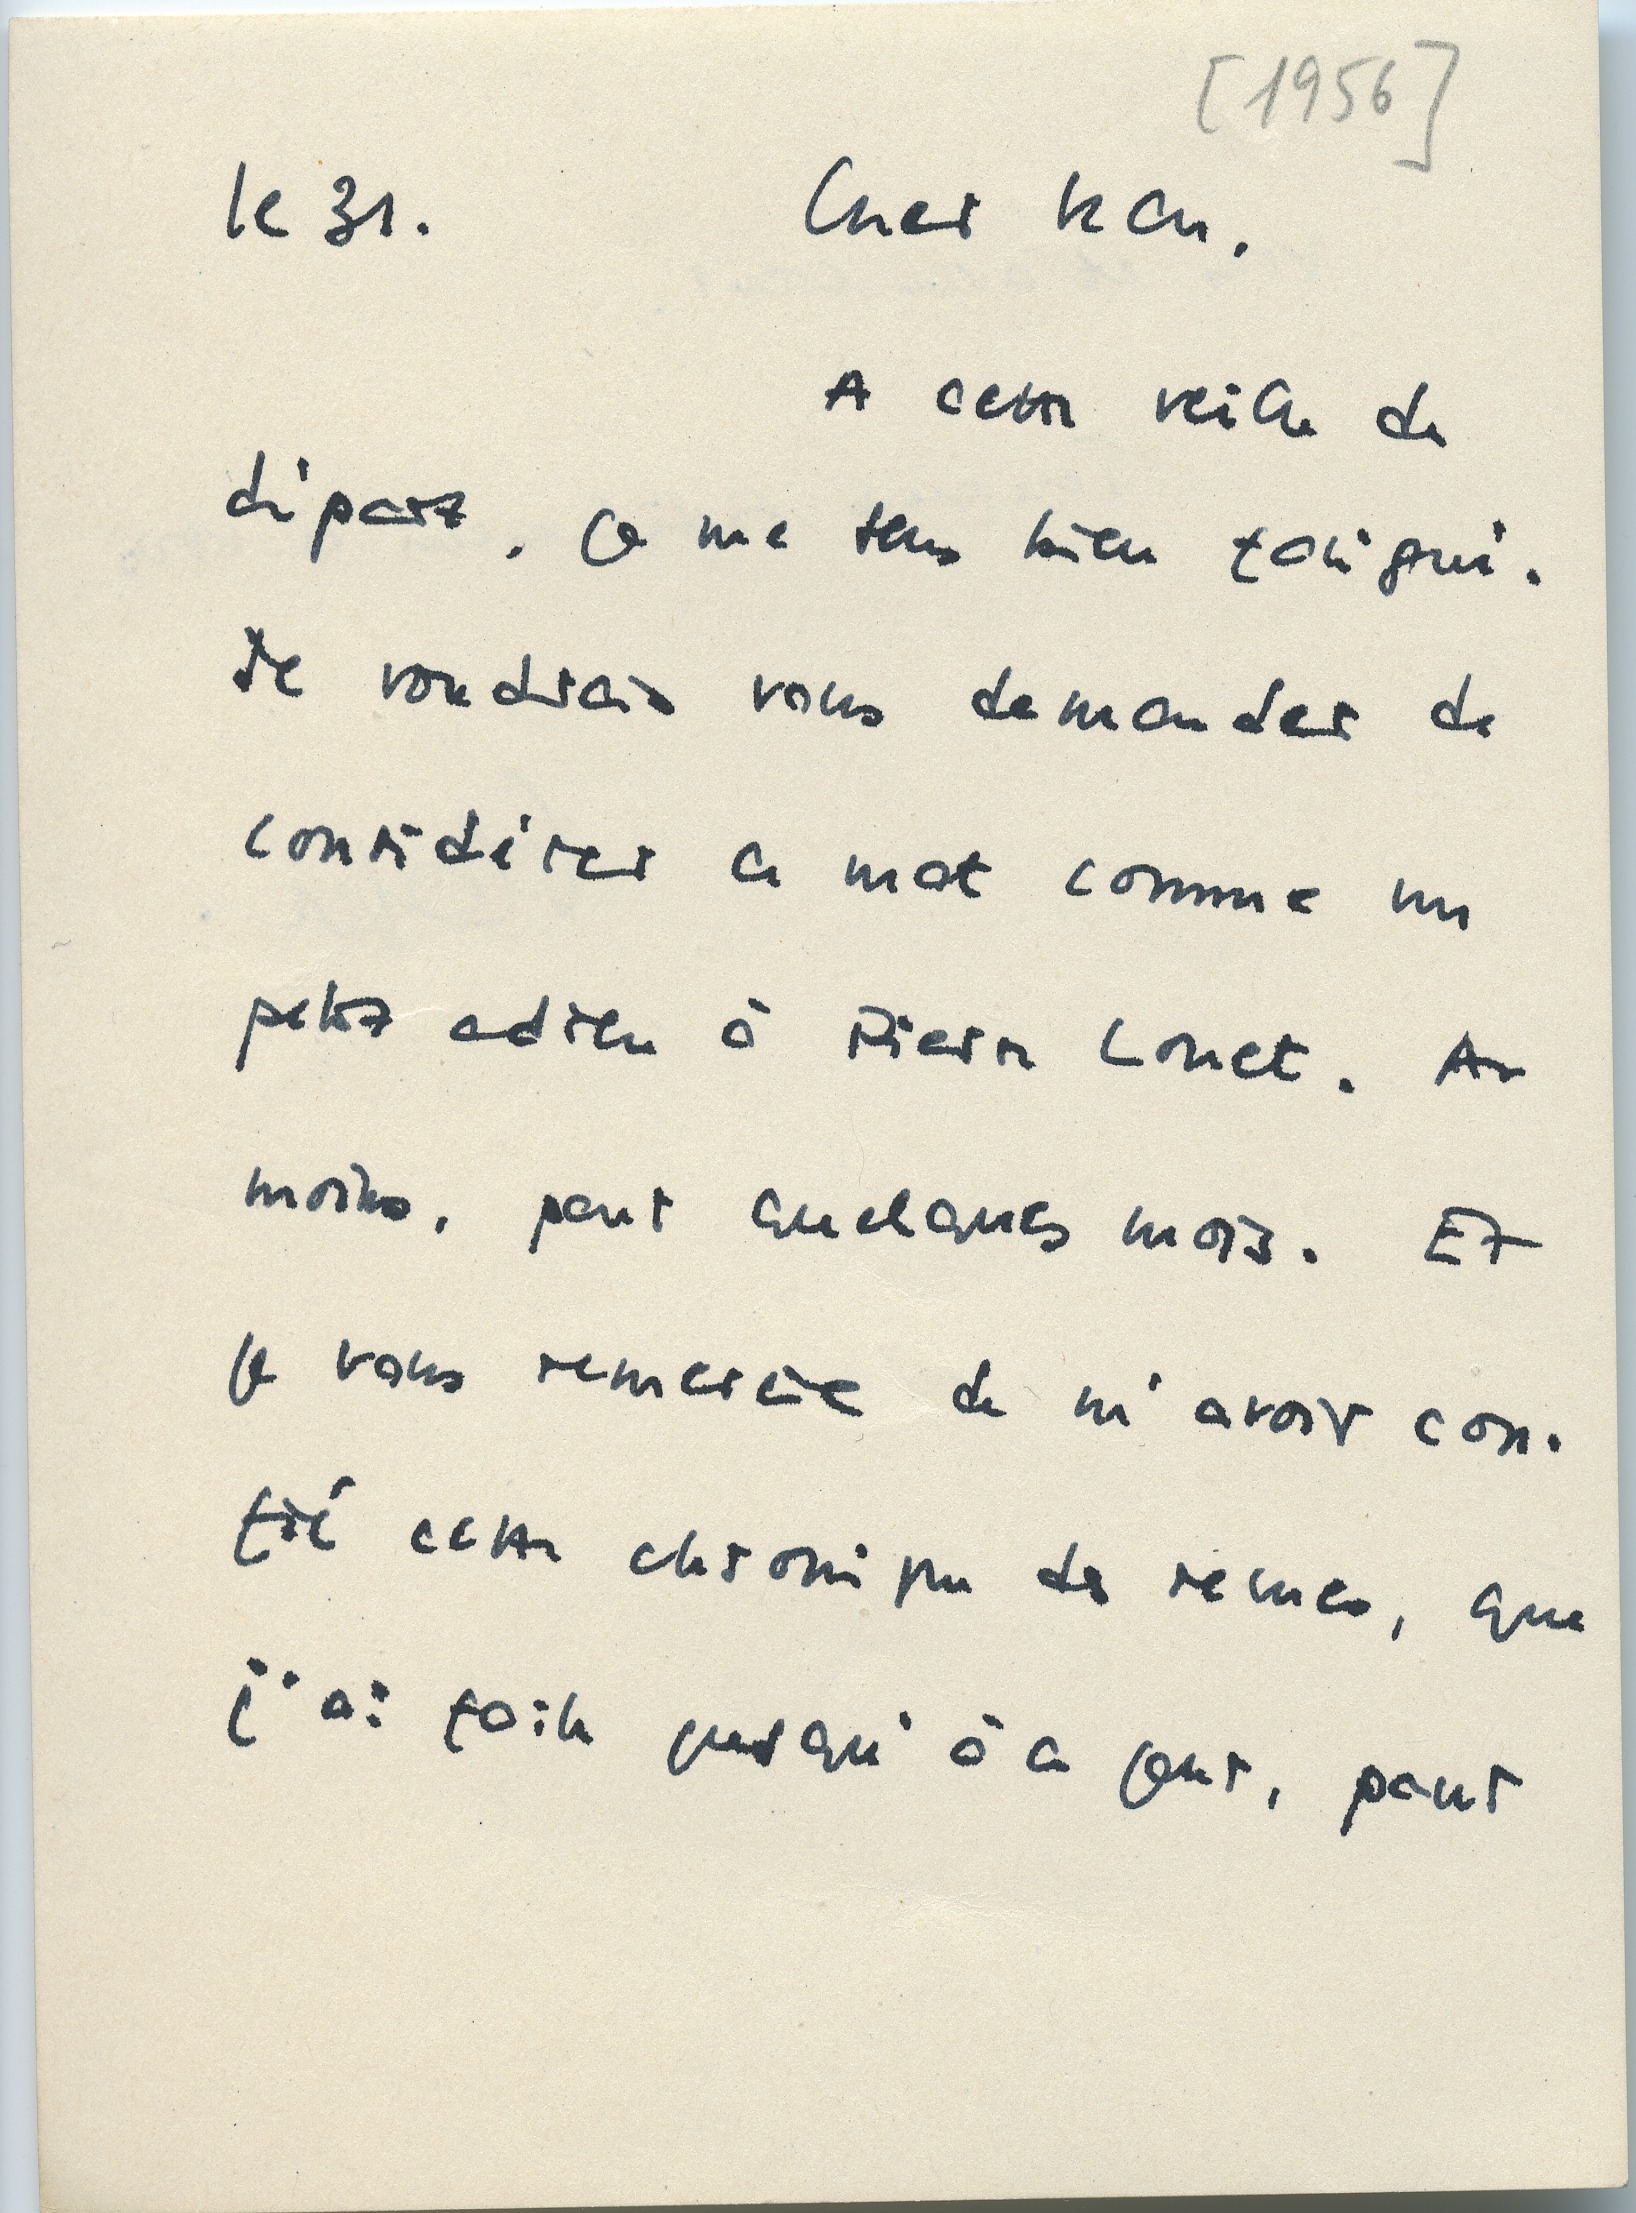 [1956]
le 31. Cher Jean.
A cette veille de
départ, je me sens bien fatigué.
Je voudrais vous demander de
considérer ce mot comme un
petit adieu à Pierre Lonet. Au
moins, pour quelques mois. Et
je vous remercie de m'avoir con-
fié cette chronique des revues, que
j'ai faite jusqu'à ce jour, pour